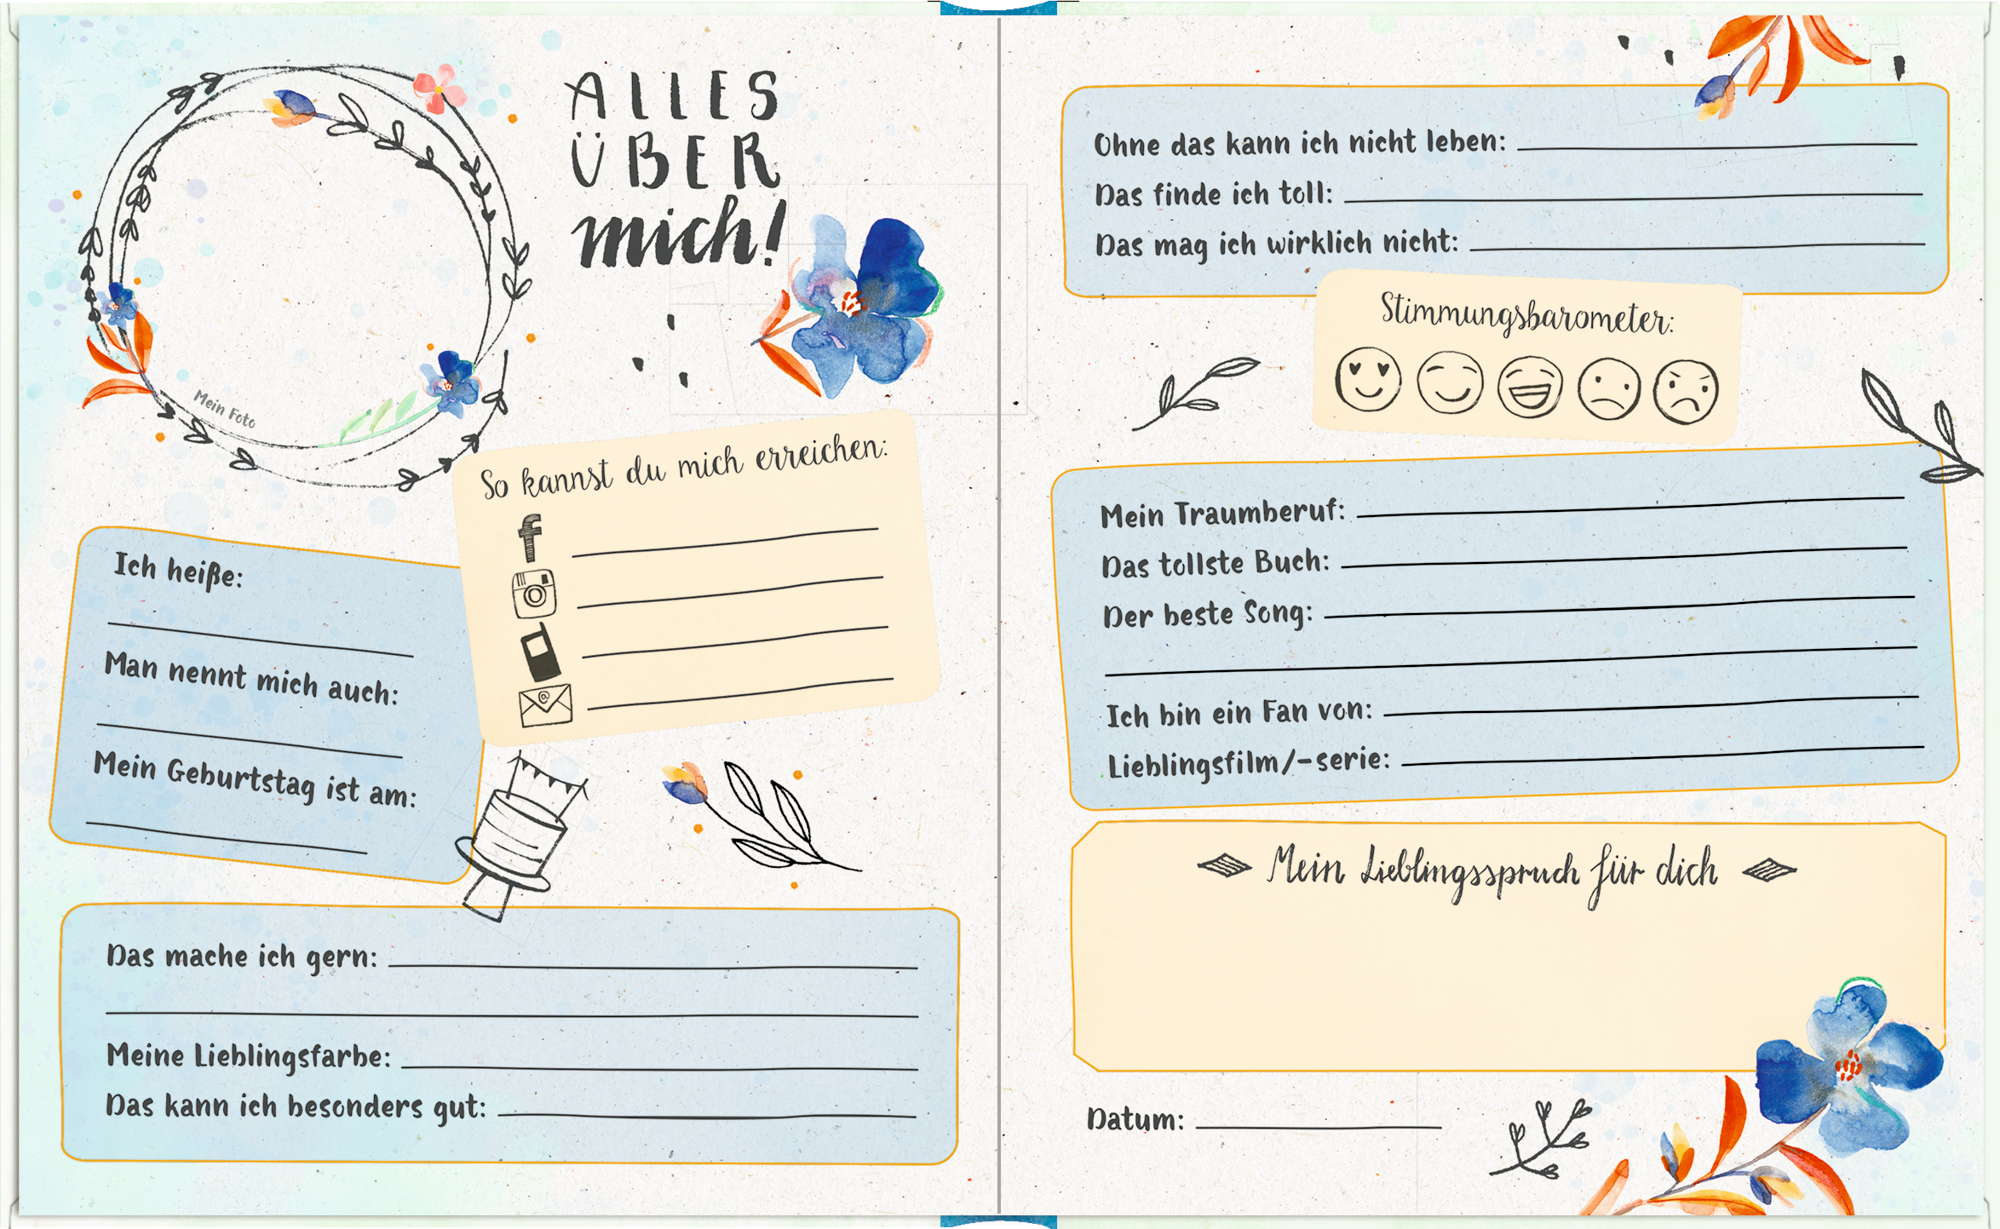 ALLES
ÜBER
mich!
Mein Foto
So kannst du mich erreichen:
f
@
Ich heiße:
Man nennt mich auch:
Mein Geburtstag ist am:
Das mache ich gern:
Meine Lieblingsfarbe:
Das kann ich besonders gut:
Ohne das kann ich nicht leben:
Das finde ich toll:
Das mag ich wirklich nicht:
Stimmungsbarometer:
Mein Traumberuf:
Das tollste Buch:
Der beste Song:
Ich bin ein Fan von:
Lieblingsfilm/-serie:
Mein Lieblingsspruch für dich
Datum: